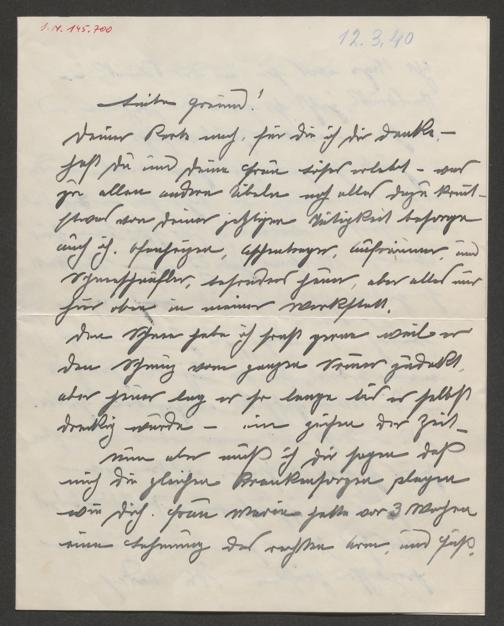 I.N. 145.700
12.3.40
Lieber Freund!
Deiner Karte nach, für die ich dir danke, –
hast du und deine Frau böses erlebt – was
zu allen andern Übeln noch alles dazu kommt –
Etwas von deiner jetzigen Tätigkeit besorge
auch ich. Ofenheizen, Aschentragen, Aufräumen, und
Schneeschaufler, besonders heuer, aber alles nur
hier oben in meiner Werkstatt.
Den Schnee habe ich sonst gerne weil er
den Schmutz vom ganzen Sommer zudeckt,
aber heuer lag er so lange bis er selbst
dreckig wurde – ein Zeichen der Zeit –
Nun aber muß ich dir sagen daß
mich die gleichen Krankensorgen plagen
wie dich. Frau Marie hatte vor 3 Wochen
eine Lähmung des rechten Arm, und Fuß,